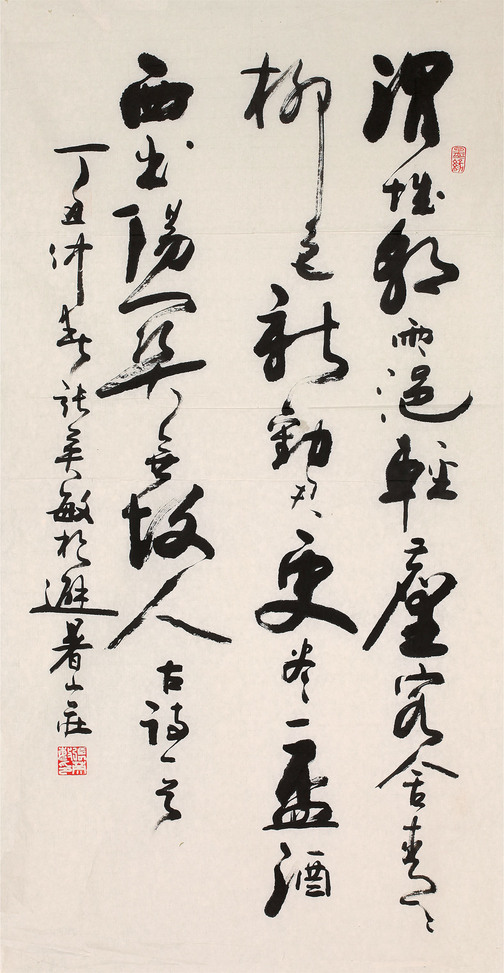 渭城朝雨浥輕塵客舍青々
柳色新勸君更尽一盃酒
西出陽關無故人 古詩一首
丁丑仲春張英敏於避暑山莊